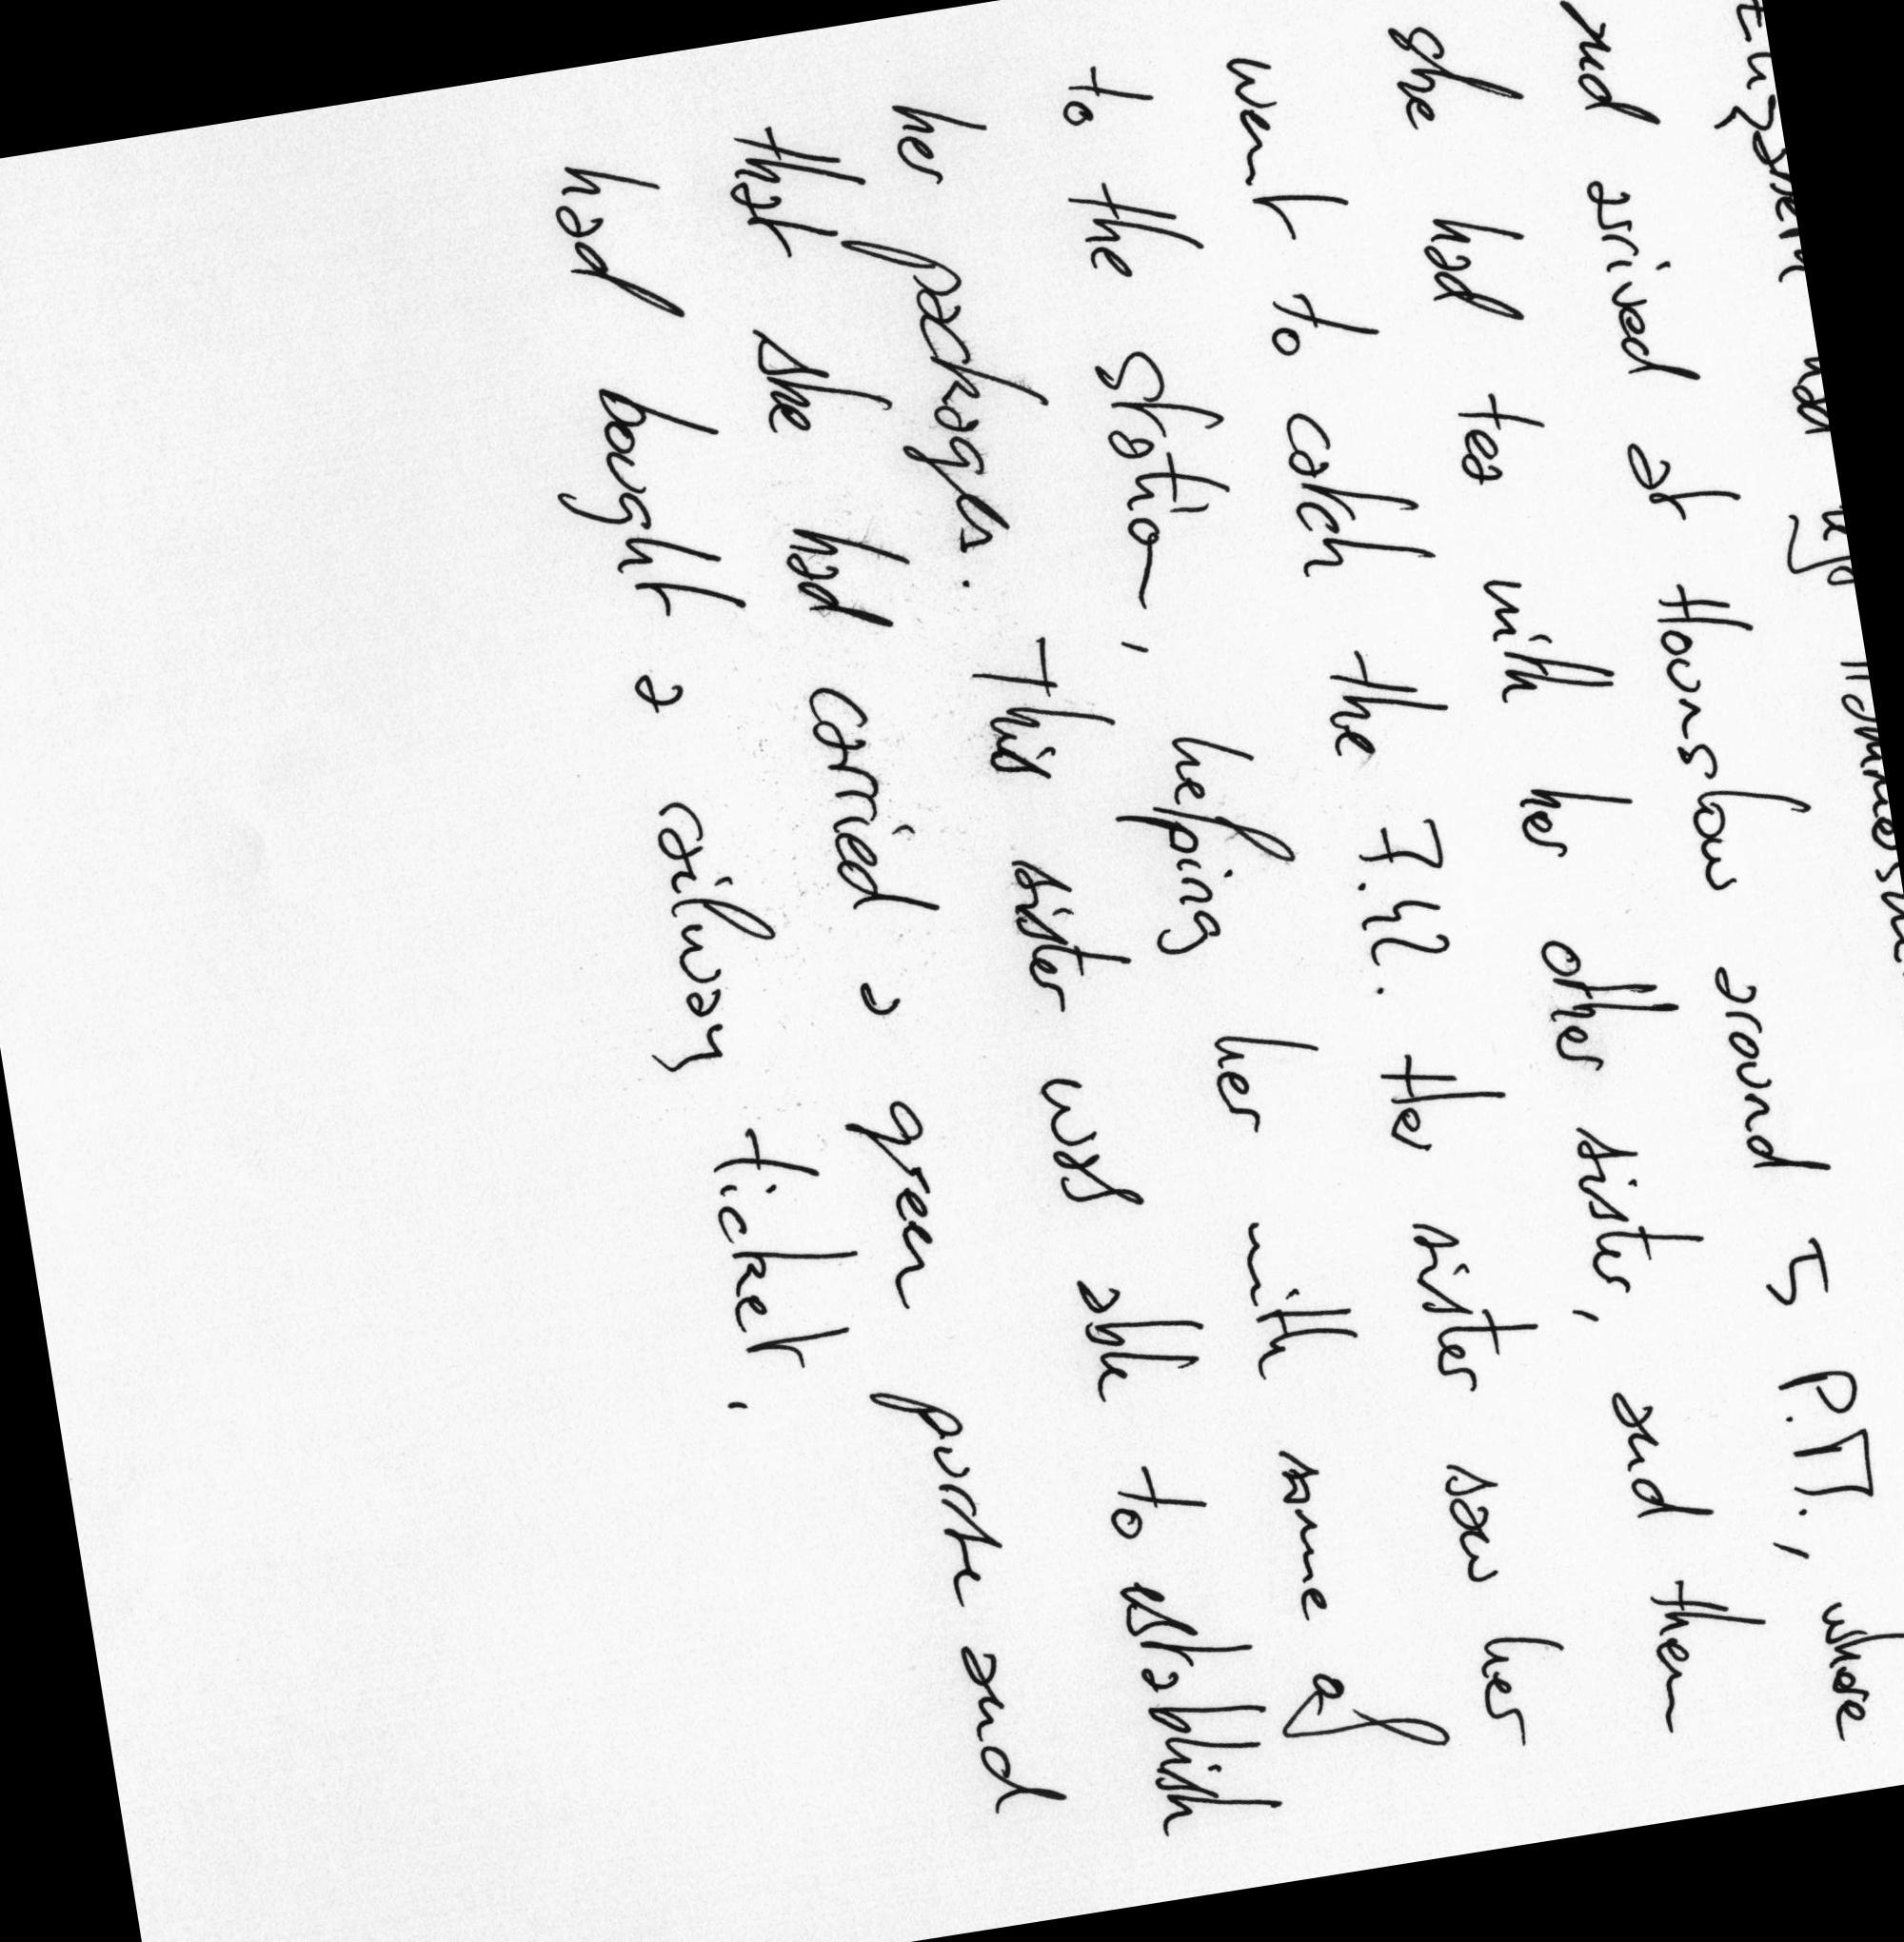 and arived at Hounslow around 5 P.M., where
she had tea with her other sister, and then
went to catch the 7.42. Her sister saw her
to the station, helping her with some of
her packages. This sister was able to establish
that she had carried a green purse and
had bought a railway ticket.